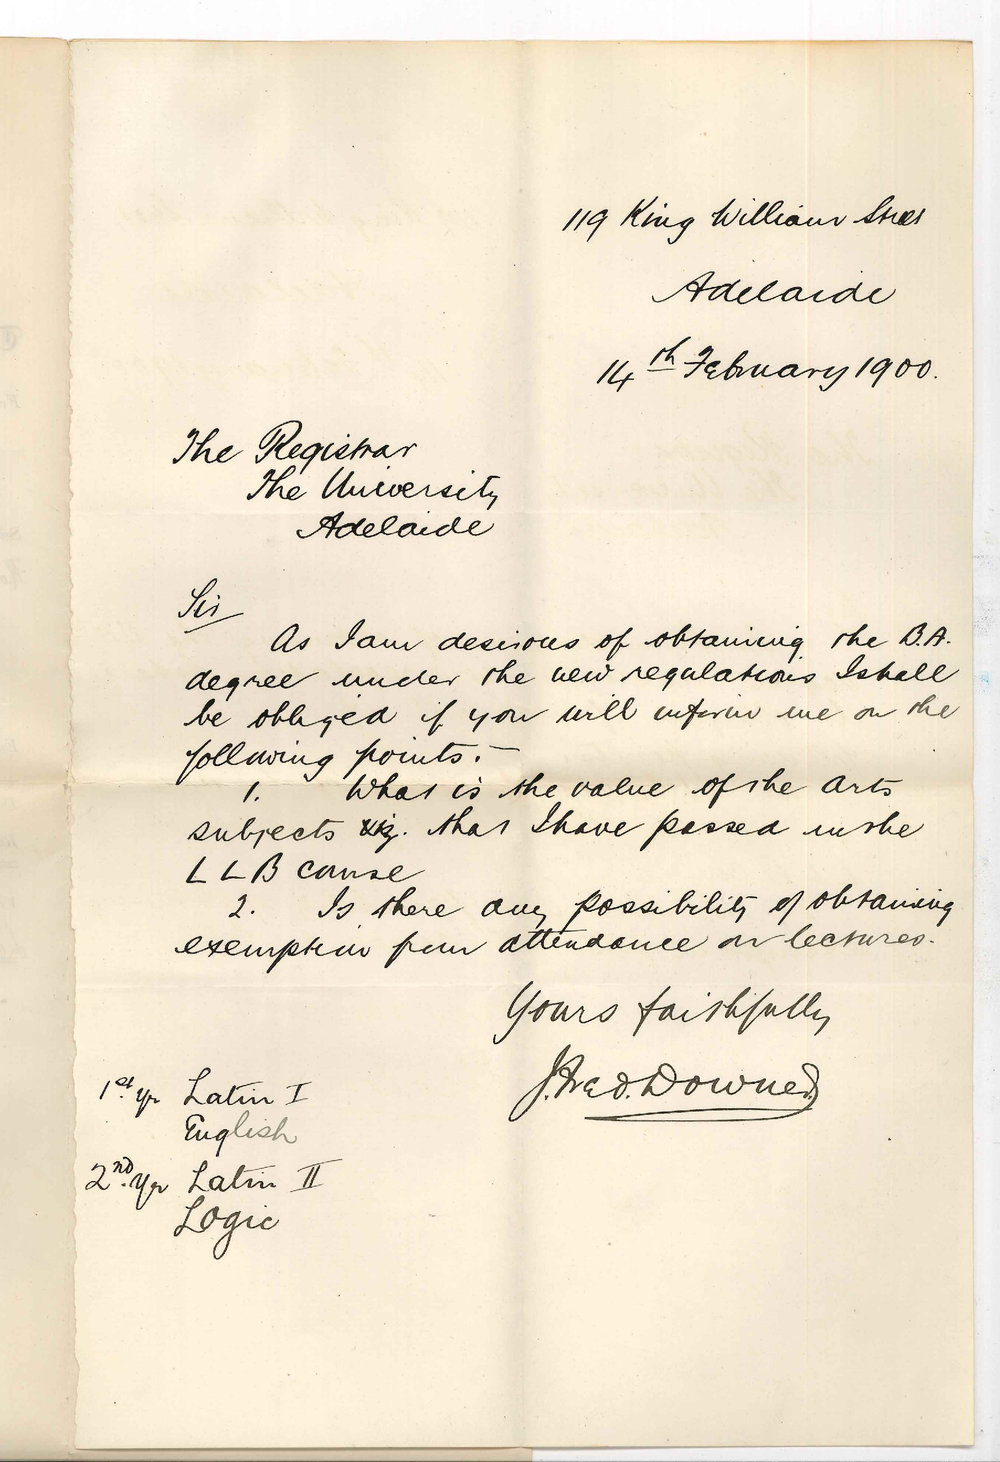 119 King William Street
Adelaide
14th February 1900.
The Registrar
The University
Adelaide
Sir
As I am desirous of obtaining the B.A.
degree under the new regulations I shall
be obliged if you will inform me on the
following points:-
1. What is the value of the Arts
subjects viz. that I have passed in the
L L B course
2. Is there any possibility of obtaining
exemption from attendance on lectures.
Yours faithfully
J. Fred. Downer
1st. yr Latin I
English
2nd. Yr Latin II
Logic